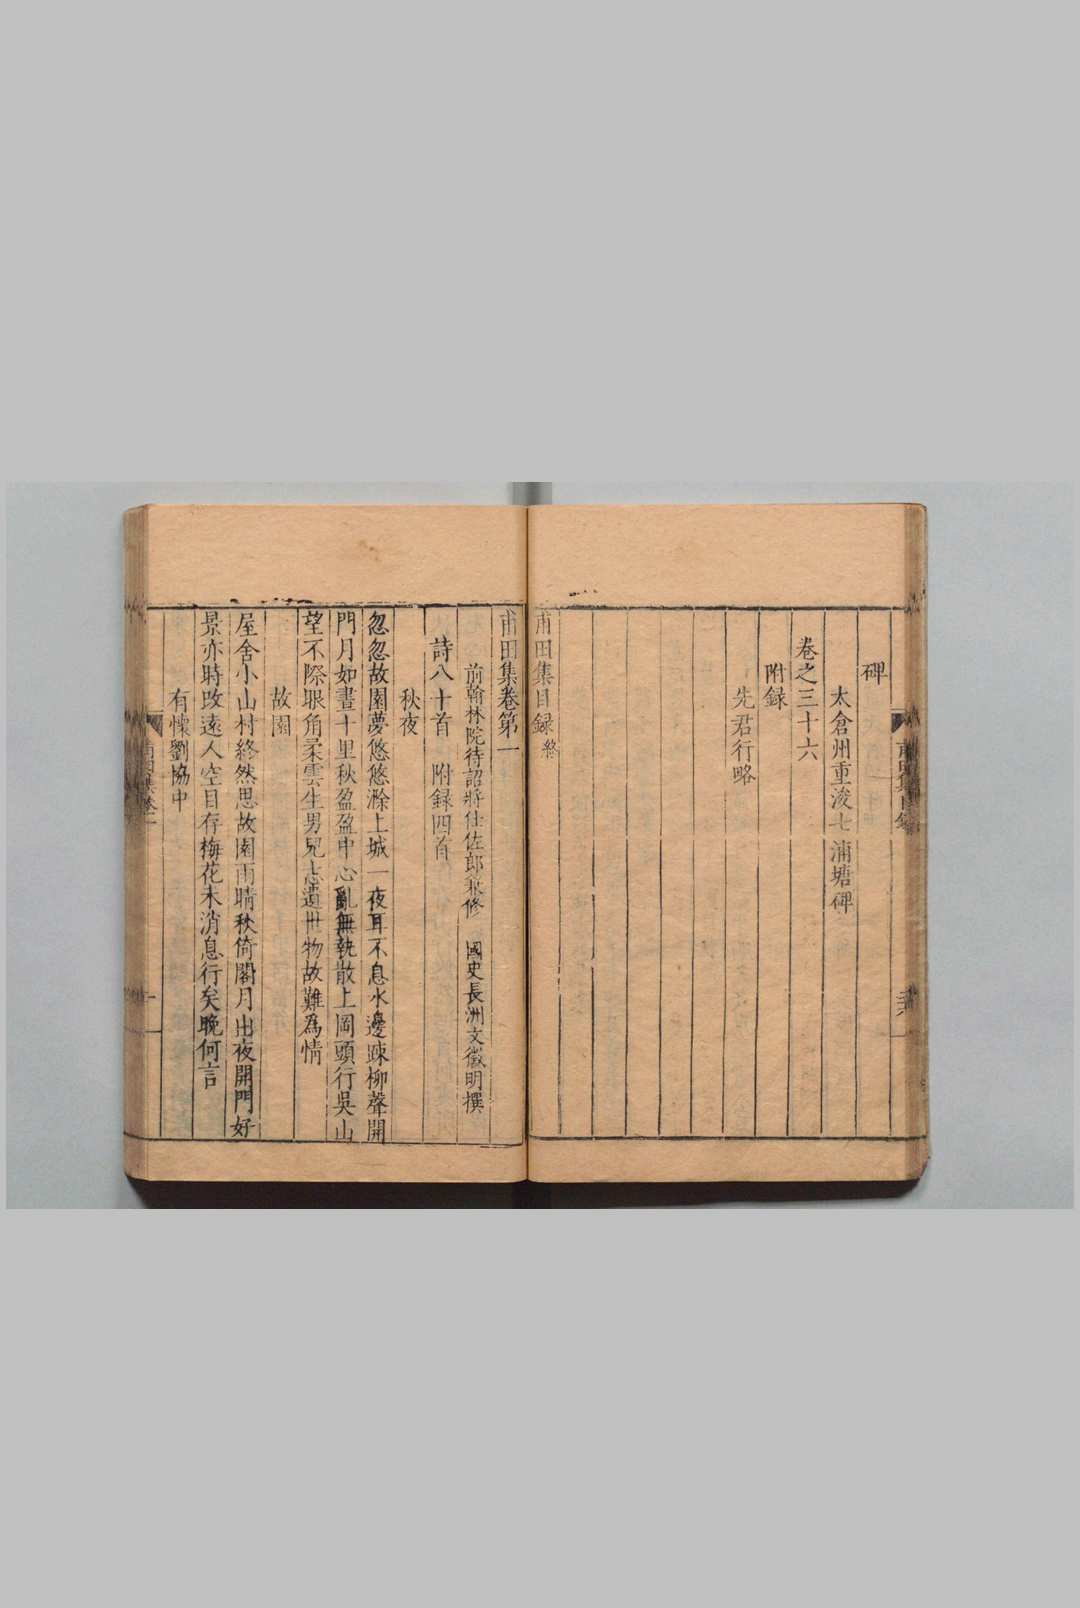 碑
太倉州重浚七浦塘碑
卷之三十六
附録
先君行略
甫田集目録終
甫田集卷第一
前翰林院待詔將仕佐郎兼修 國史長洲文徵明撰
詩八十首 附録四首
秋夜
忽忽故園夢悠悠滁上城一夜耳不息水邊疎柳聲開
門月如晝十里秋盈盈中心亂無執散上岡頭行吳山
望不際眼角柔雲生男兒志遺世物故難為情
故園
屋舍小山村終然思故園雨晴秋倚閣月出夜開門好
景亦時改遠人空目存梅花未消息行矣晚何言
有懷劉協中